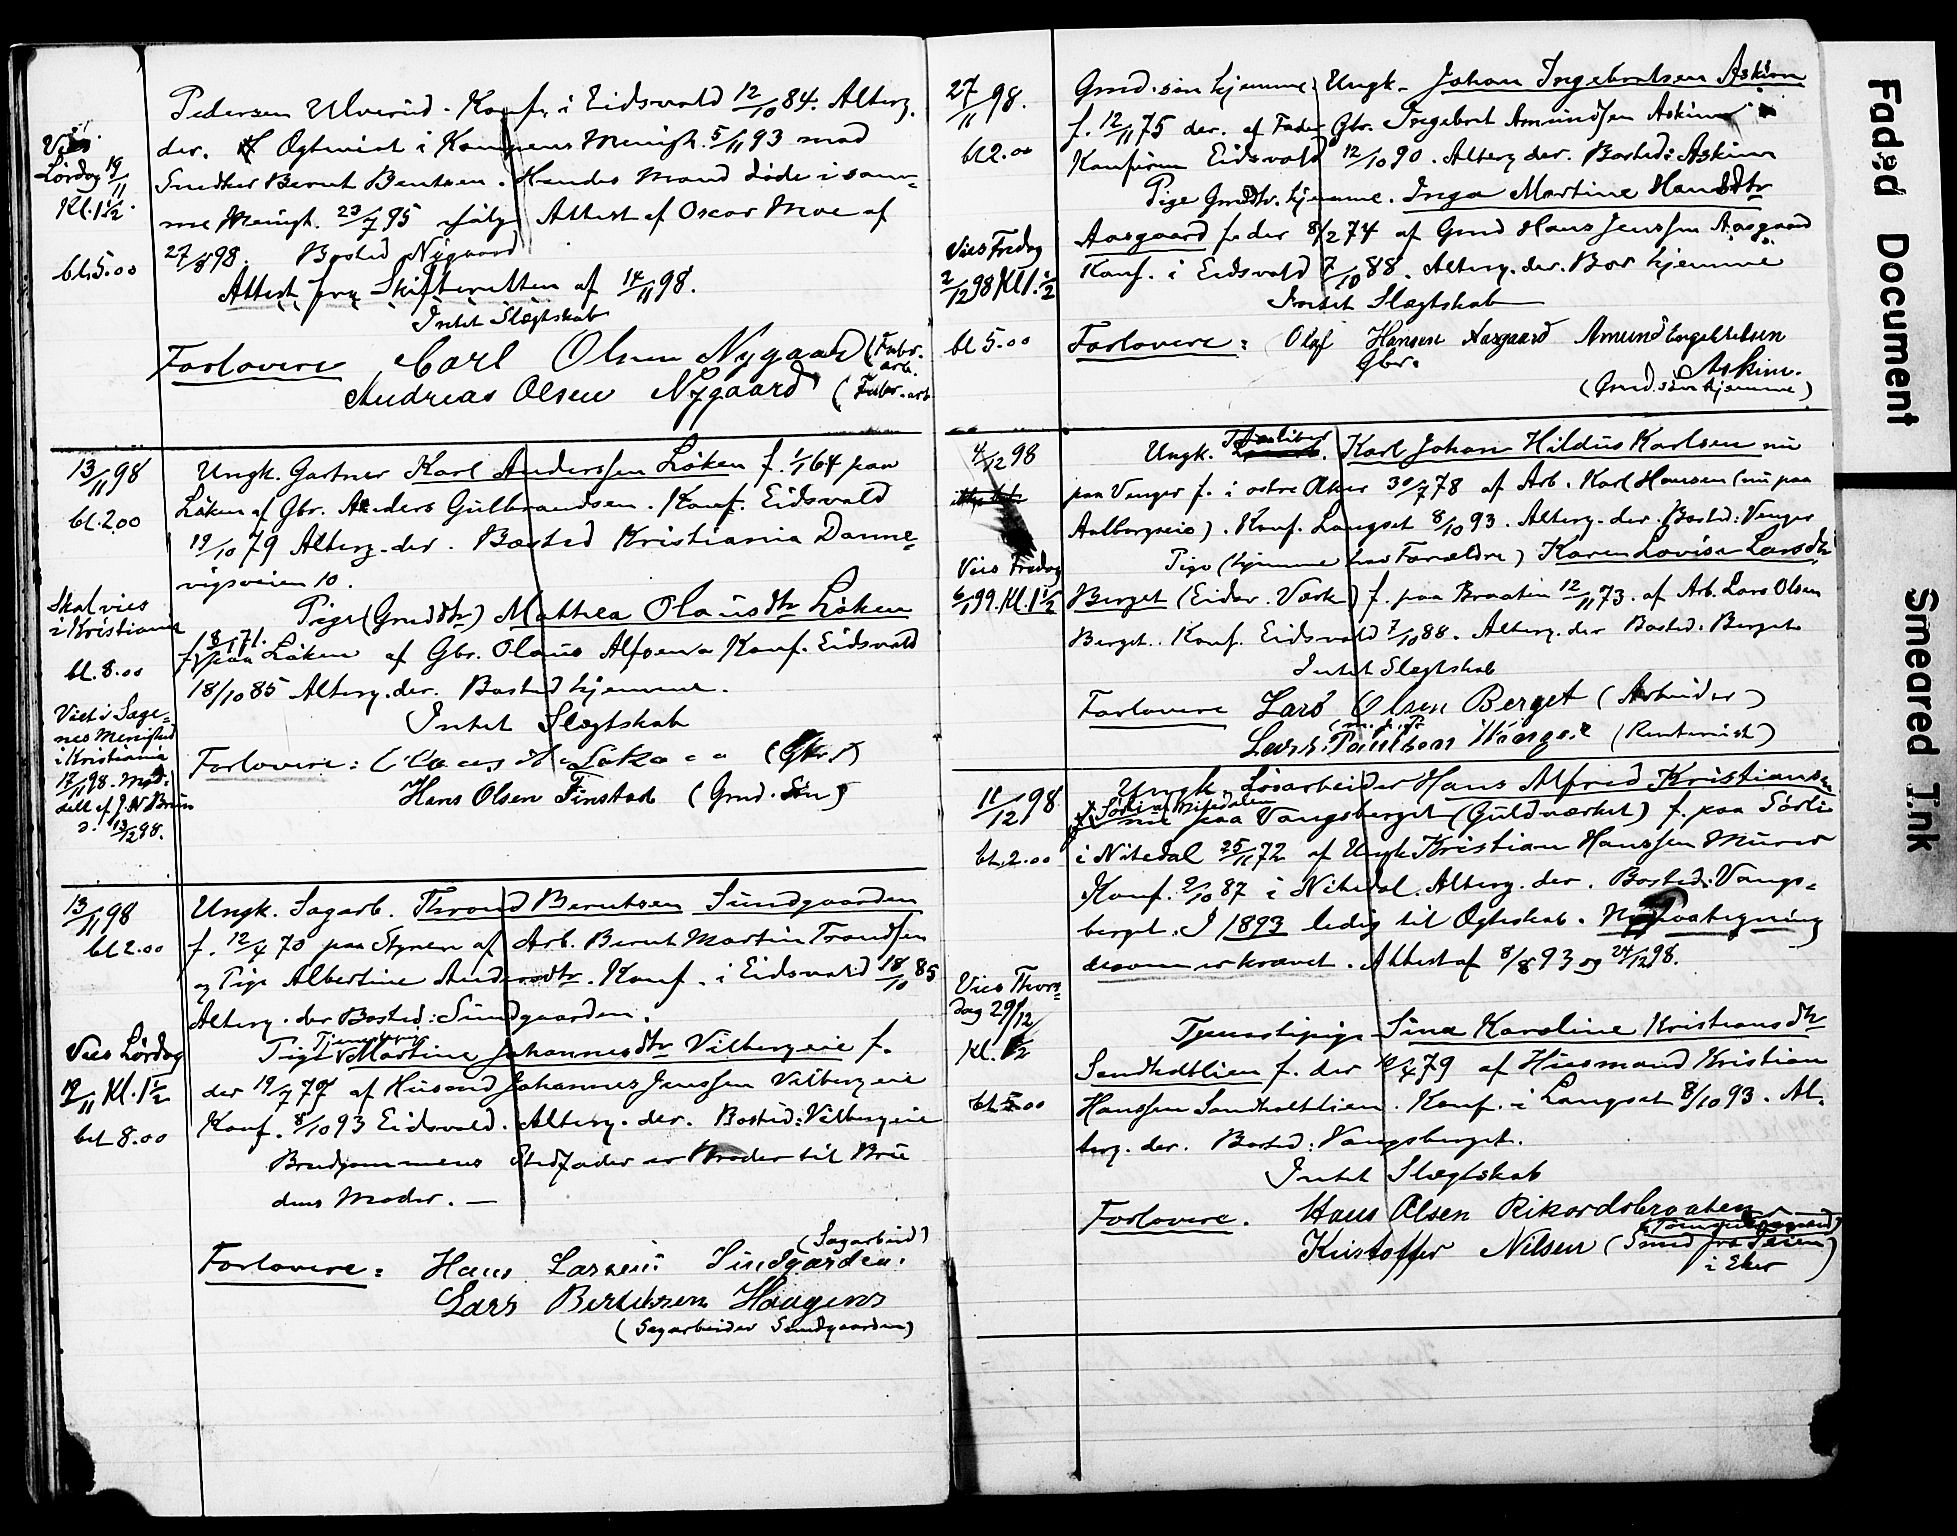 Pedersen Ulverud. Konf. i Eidsvold 12/10 84. Alterg.
Vies
der. Ogteviet i Kampens Menigh. 5/11 93 med
Lördag 19/11
Snedker Bernt Bentsen. Hendes Mand döde i sam-
Kl. 1 1/2.
me Menigh. 23/7 95 ifölge Attest af Oscar Moe af
27/8 98. Bosted Nygaard
bt. 5.00
Attest fra Skifteretten af 14/11 98.
Intet Slægtskab
Forlovere Carl Olsen Nygaard (Fabr. arb.
Andreas Olsen Nygaard (Fabr. arb
13/11 98
bt. 2.00
Ungk. Gartner Karl Anderssen Löken f. 1/1 64 paa
Löken af Gbr. Anders Gulbrandsen. Konf. Eidsvold
19/10 79 Alterg. der. Bosted Kristiania Danne-
vigsveien 10.
Skal vies
i Kristiania
bt. 8.00
Pige (Gmd dtr) Mathea Olausdtr Löken
f. 8/1 71. paa Löken af Gbr. Olaus Alfsen Konf. Eidsvold
18/10 85 Alterg. der. Bosted hjemme.
Intet Slægtskab
Viet i Sage-
nes Menighed
i Kristiania
/11 98. Med-
delt af J. N. Brun
d. 13/12 98.
Forlovere: Löken (Gbr.)
Hans Olsen Finstad (Gmd. Sön)
13/11 98
bt 2.00
Ungk. Sagarb. Thrond Berntsen Sundgaarden
f. 12/4 70 paa Styren af Arb. Bernt Martin Trondsen
og Pige Albertine Andersdtr. Konf. i Eidsvold 18/10 85
Alterg. der Bosted: Sundgaarden.
Vies Lördag
19/11 Kl. 1 1/2
bet 8.00
Tjenest
Pige Martine Johannesdtr Vilbergeie f.
der 19/7 77 af Husmd Johannes Jenssen Vilbergeie
Konf. 8/10 93 Eidsvold. Alterg. der. Bosted: Vilbergeie
Brudgommens Stedfader er Broder til Bru
dens Moder. —
(Sagarbeid)
Forlovere: Hans Larsen Sundgarden.
Lars Berntsen Haagens
(Sagarbeider Sundgaarden)
27/11 98.
bt 2.00
Gmd. sön hjemme Ungk. Johan Ingebretsen Askim
f. 12/11 75 der. af Fader Gbr. Ingebret Amundsen Askim
Konfirm Eidsvold 12/10 90. Alterg der. Bosted: Askim
Pige Gmddtr. hjemme. Inga Martine Hansdtr
Vies Fredag
2/12 98 Kl 1. 1/2
bt 5.00
Aasgaard f. der 8/2 74 af Gmd Hans Jenssen Aasgaard
Konf. i Eidsvold 7/10 88. Alterg. der. Bor hjemme
Intet Slægtskab
Forlovere: Olaf Hansen Aasgaard Amund Engebretsen
Gbr. Askim.
(Gmd. sön hjemme)
4/12 98
Ungk. Karl Johan Hildus Karlsen nu
paa Venger f. i östre Aker 30/7 78 af Arb. Karl Hansen (nu paa
Aalborgseie). Konf. Langset 8/10 93. Alterg. der. Bosted: Venger
Vies Fredag
6/1 99. Kl. 1 1/2
Pige (hjemme hos Forældre) Karen Lovise Larsdtr
Berget (Eidsv. Værk) f. paa Braatin 12/11 73. af Arb. Lars Olsen
Berget. Konf. Eidsvold 7/10 88. Alterg. der Bosted. Berget
Intet Slægtskab
Forlovere Lars Olsen Berget (Arbeider)
(m. p. P.
Lars Paulsen Wenger (Rentenist)
11/12 98
bt. 2.00
Ungk. Lösarbeider Hans Alfred Kristiansen
Sörli af Nitedalen
nu paa Vangsberget (Guldværket) f. paa Sörli
i Nitedal 25/11 72 af Ungk Kristian Hanssen Murer
Konf. 2/10 87 i Nitedal. Alterg. der. Bosted: Vangs-
berget. I 1893 ledig til Ogteskab. Ny Paategning
desom er krævet. Attest af 8/8 93 og 24/12 98.
Vies Thors-
dag 29/12
Kl. 1 1/2
bt. 5.00
Tjenestepige Sina Karoline Kristiansdtr
Sandholtlien f. der 12/4 79 af Husmand Kristian
Hanssen Sandholtlien. Konf. i Langset 8/10 93. Al-
terg. der. Bosted: Vangsberget.
Intet Slægtskab
Forlovere. Hans Olsen Rikardsbraaten
Kristoffer Nilsen (Smed fra
i Eker)
Faded Document
Smeared Ink